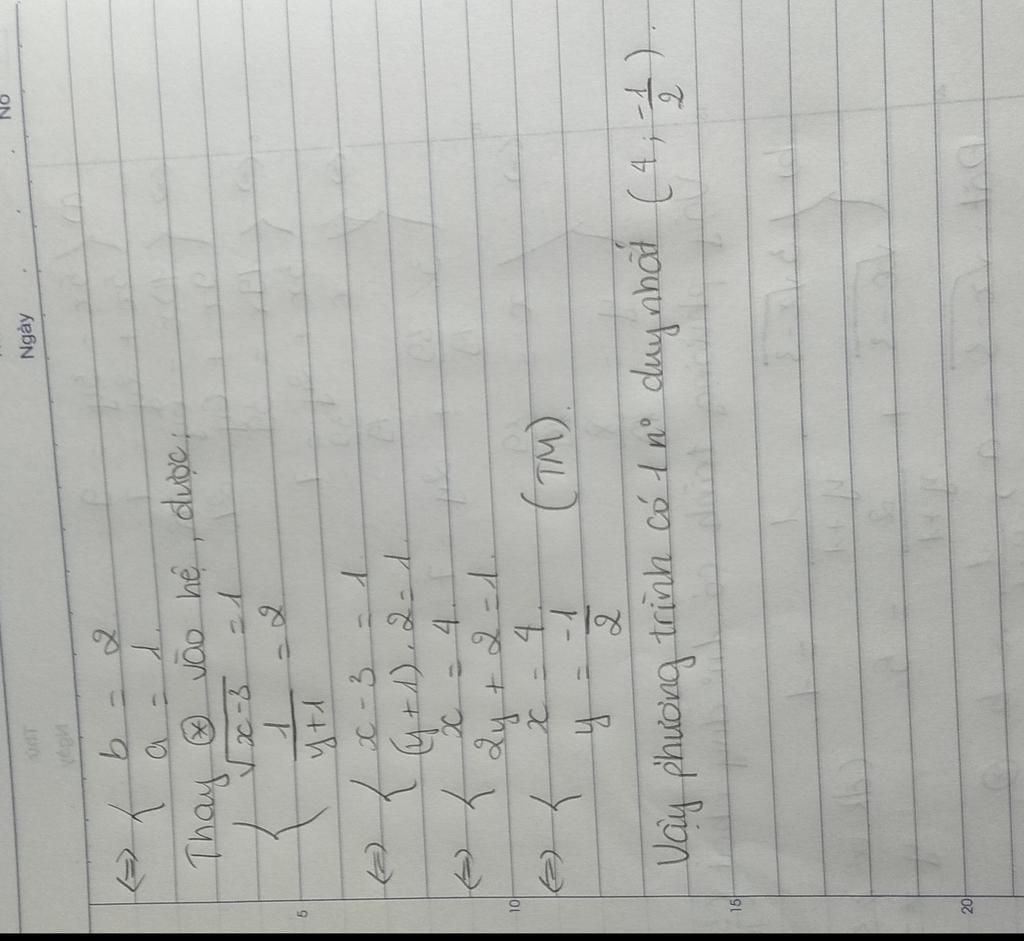 No
Ngày
⇔ { b = 2
a = 1.
Thay ⊛ vào hệ, được:
{ √x-3 = 1
1/y+1 = 2
⇔ { x-3 = 1
(y+1).2 = 1.
⇔ { x = 4.
2y + 2 = 1.
⇔ { x = 4.
y = -1/2 (TM).
Vậy phương trình có 1 n° duy nhất (4; -1/2).
5
10
15
20